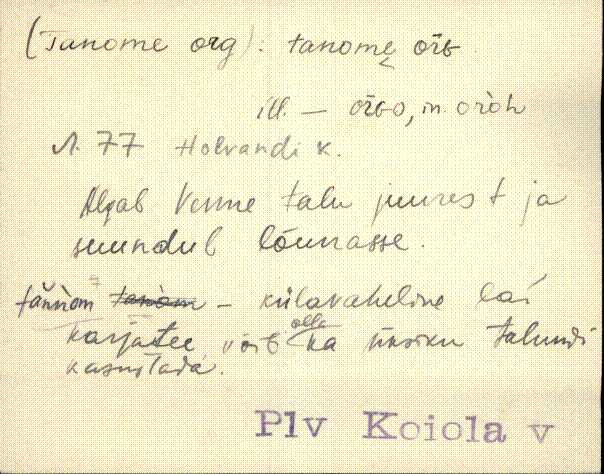 (Tanome org): tanome org
ill. — orgo, in. oroh
n. 77 Holvandi k.
Algab Venne talu juurest ja
suundub lõunasse.
tännom – külavaheline lai
karjatee võib olla ka üksiku talundi
kasutada.
Plv Koiola v